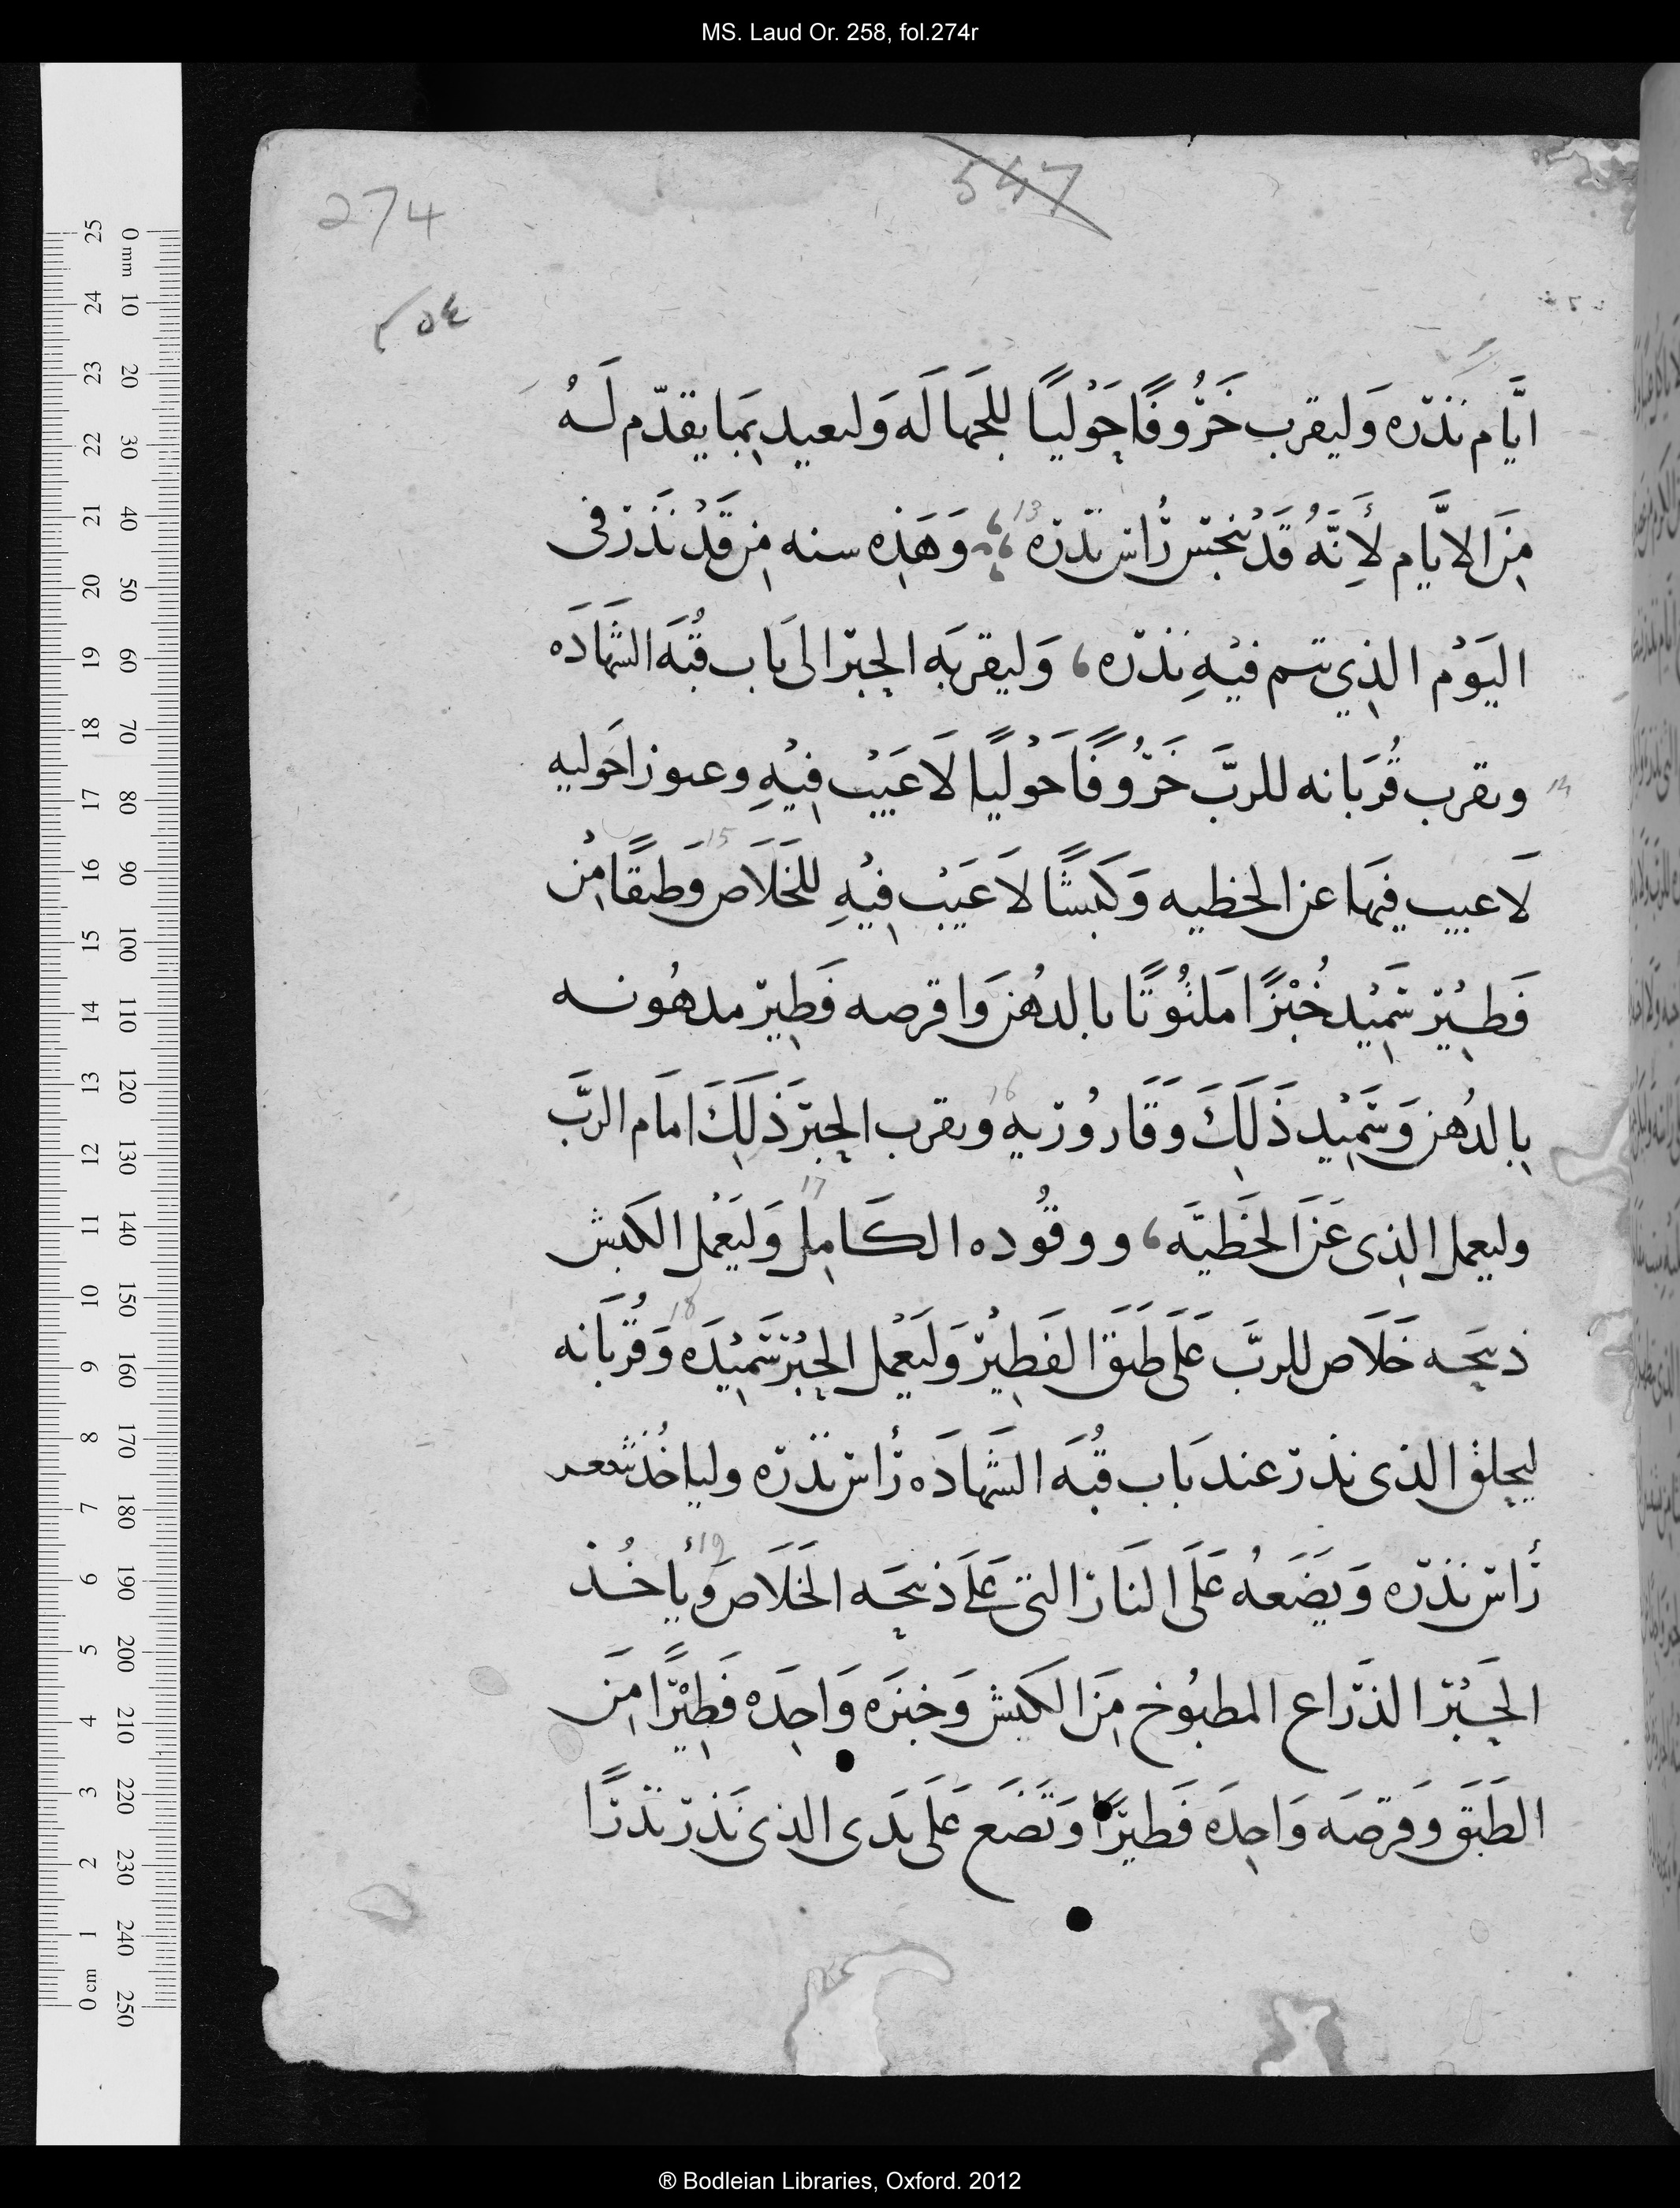 MS. Laud Or. 258, fol.274r
547
274
٢٥٤
ايَّام نَذْره وَليقرب خَرُوفًا حَوْليًا للجَهَالَه وَليعيد بِمَا يقدّم لَهُ
مِنَ الايَّام لأَِنَّهُ قَدْ نجّس رَأس نذره 13 وَهَذِه سنه مِن قَدْ نَذَر في
اليَوْم الذِي تتم فيْهِ نَذره، وَليقربَه الحِبْر الى بَاب قُبَه الشَهَادَه
14 ويقرب قُرَبَانه للربَّ خَرُوفًا حَوْليًا لَا عَيْب فِيْهِ وعبوزا حَوليه
لَا عيب فيهَا عن الخطيه وَكَبشًا لَا عَيْب فِيْهِ للخَلَاص 15 وَطبقًا مِنْ
فَطِيْر سَمِيْد خُبْزًا مَلتُوتًا بالدهُن وَاقرصه فَطِير مدهُونه
بِالدُهن وَسَمِيْد ذَلِكَ وَقَارُورَيه 16 ويقرب الحِبَر ذَلِكَ امَام الربَّ
وليعمل الذِى عَنَ الخَطيَّه، ووقُوده الكَامِل 17 وَليَعْمل الكَبش
ذبيحَه خَلَاص للربَّ عَلَى طَبَق الفَطِيْر وَليَعْمل الحِبْر سَمِيْدَه وَقُربَانه 18
ليحلق الذى نذر عند بَاب قُبَه الشَهَادَه رَأس نَذره ولياخُذ شعر
رَأس نَذره وَيضَعهُ عَلَى النَار التى عَلَى ذبيحَه الخَلَاص 19 وَيأخُذ
الحَبْر الذرَاع المطبُوخ مِنَ الكَبش وَخبزَه وَاحِدَه فَطِيْرًا مِنَ
الطَبَق وَقرصَه وَاحِدَه فَطيْرًا وَتضَع عَلَى يَدى الذى نَذر نَذرًا
® Bodleian Libraries, Oxford. 2012